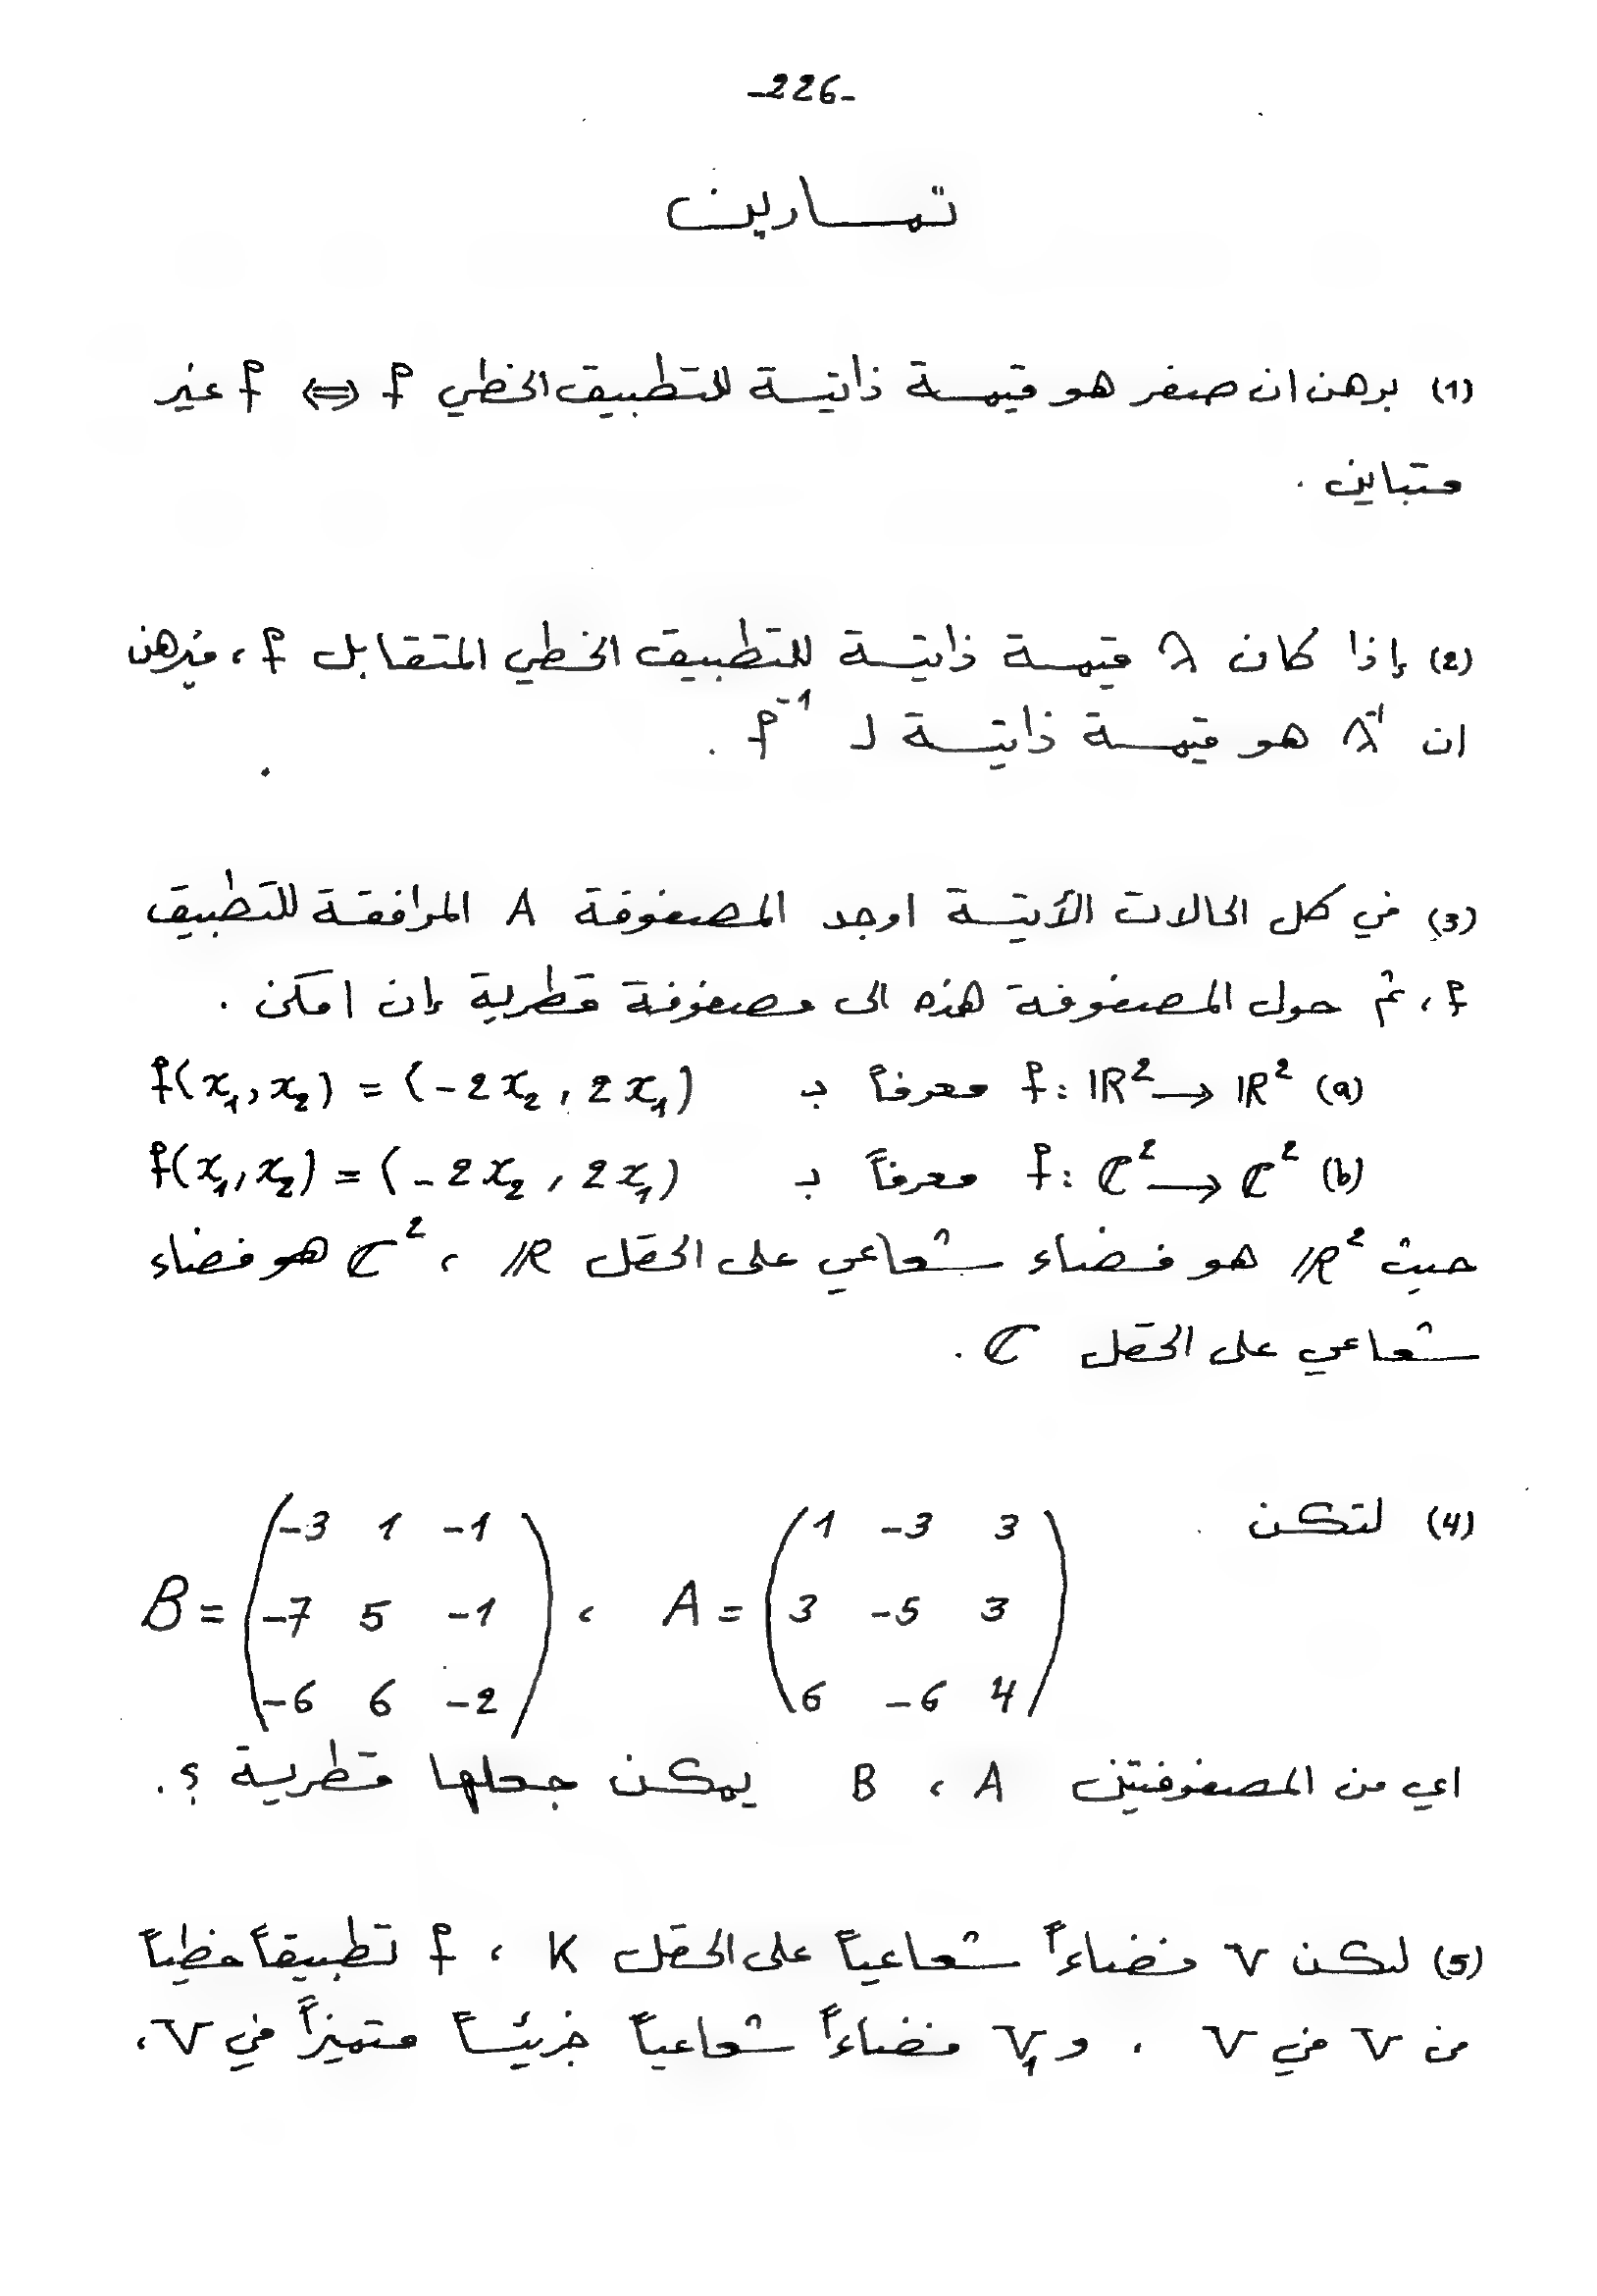 -226-
تمارين
(1) برهن ان صفر هو قيمة ذاتية للتطبيق الخطي f ⇔ f غير
متباين .
(2) إذا كان λ قيمة ذاتية للتطبيق الخطي المتقابل f ، فبرهن
ان λ⁻¹ هو قيمة ذاتية لـ f⁻¹ .
(3) في كل الحالات الأتية اوجد المصفوفة A المرافقة للتطبيق
f ، ثم حول المصفوفة هذه الى مصفوفة قطرية إن امكن .
(a) f : ℝ² → ℝ² معرفاً بـ f(x₁, x₂) = (-2x₂ , 2x₁)
(b) f : ℂ² → ℂ² معرفاً بـ f(x₁, x₂) = (-2x₂ , 2x₁)
حيث ℝ² هو فضاء شعاعي على الحقل ℝ ، ℂ² هو فضاء
شعاعي على الحقل ℂ .
(4) لتكن
A = (1 -3 3
3 -5 3
6 -6 4) ، B = (-3 1 -1
-7 5 -1
-6 6 -2)
اي من المصفوفتين A ، B يمكن جعلها قطرية ؟ .
(5) لكن V فضاءاً شعاعياً على الحقل K ، f تطبيقاً خطياً
من V في V . و V₁ فضاءاً شعاعياً جزيئاً متميزاً في V ،